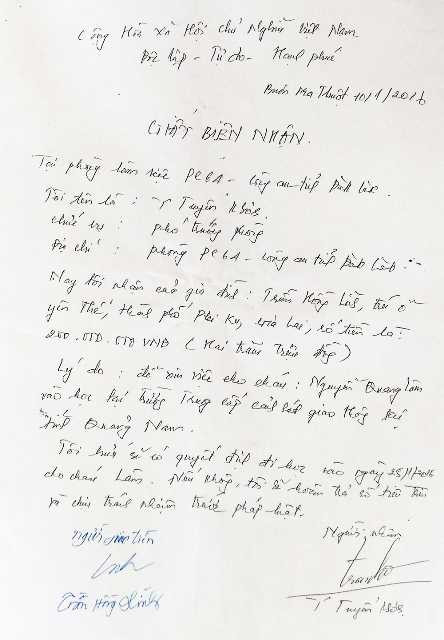 Cộng Hòa Xã Hội chủ Nghĩa Việt Nam
Độc lập - Tự do - Hạnh phúc
Buôn Ma Thuột 10/1/2016
GIẤY BIÊN NHẬN.
Tại phòng làm việc PC61 - Công an tỉnh Đắk Lắk.
Tôi tên là : Tuyến
chức vụ : phó trưởng phòng
Địa chỉ : phòng PC61 - công an tỉnh Đắk Lắk
Nay tôi nhận của gia đình : Trần Hồng trú ở
yên Thế, thành phố Plei Ku, Gia Lai, số tiền là:
200.000.000 VNĐ ( Hai trăm triệu đồng )
Lý do : để xin việc cho cháu : Nguyễn Quang Lâm
vào học tại trường Trung cấp cảnh sát giao thông tại
tỉnh Quảng Nam.
Tôi hứa sẽ có quyết định đi học vào ngày 25/1/2016
cho cháu Lâm. Nếu không, tôi sẽ hoàn trả số tiền trên
và chịu trách nhiệm trước pháp luật.
Người giao tiền
Người nhận
Trần Hồng
Tuyến